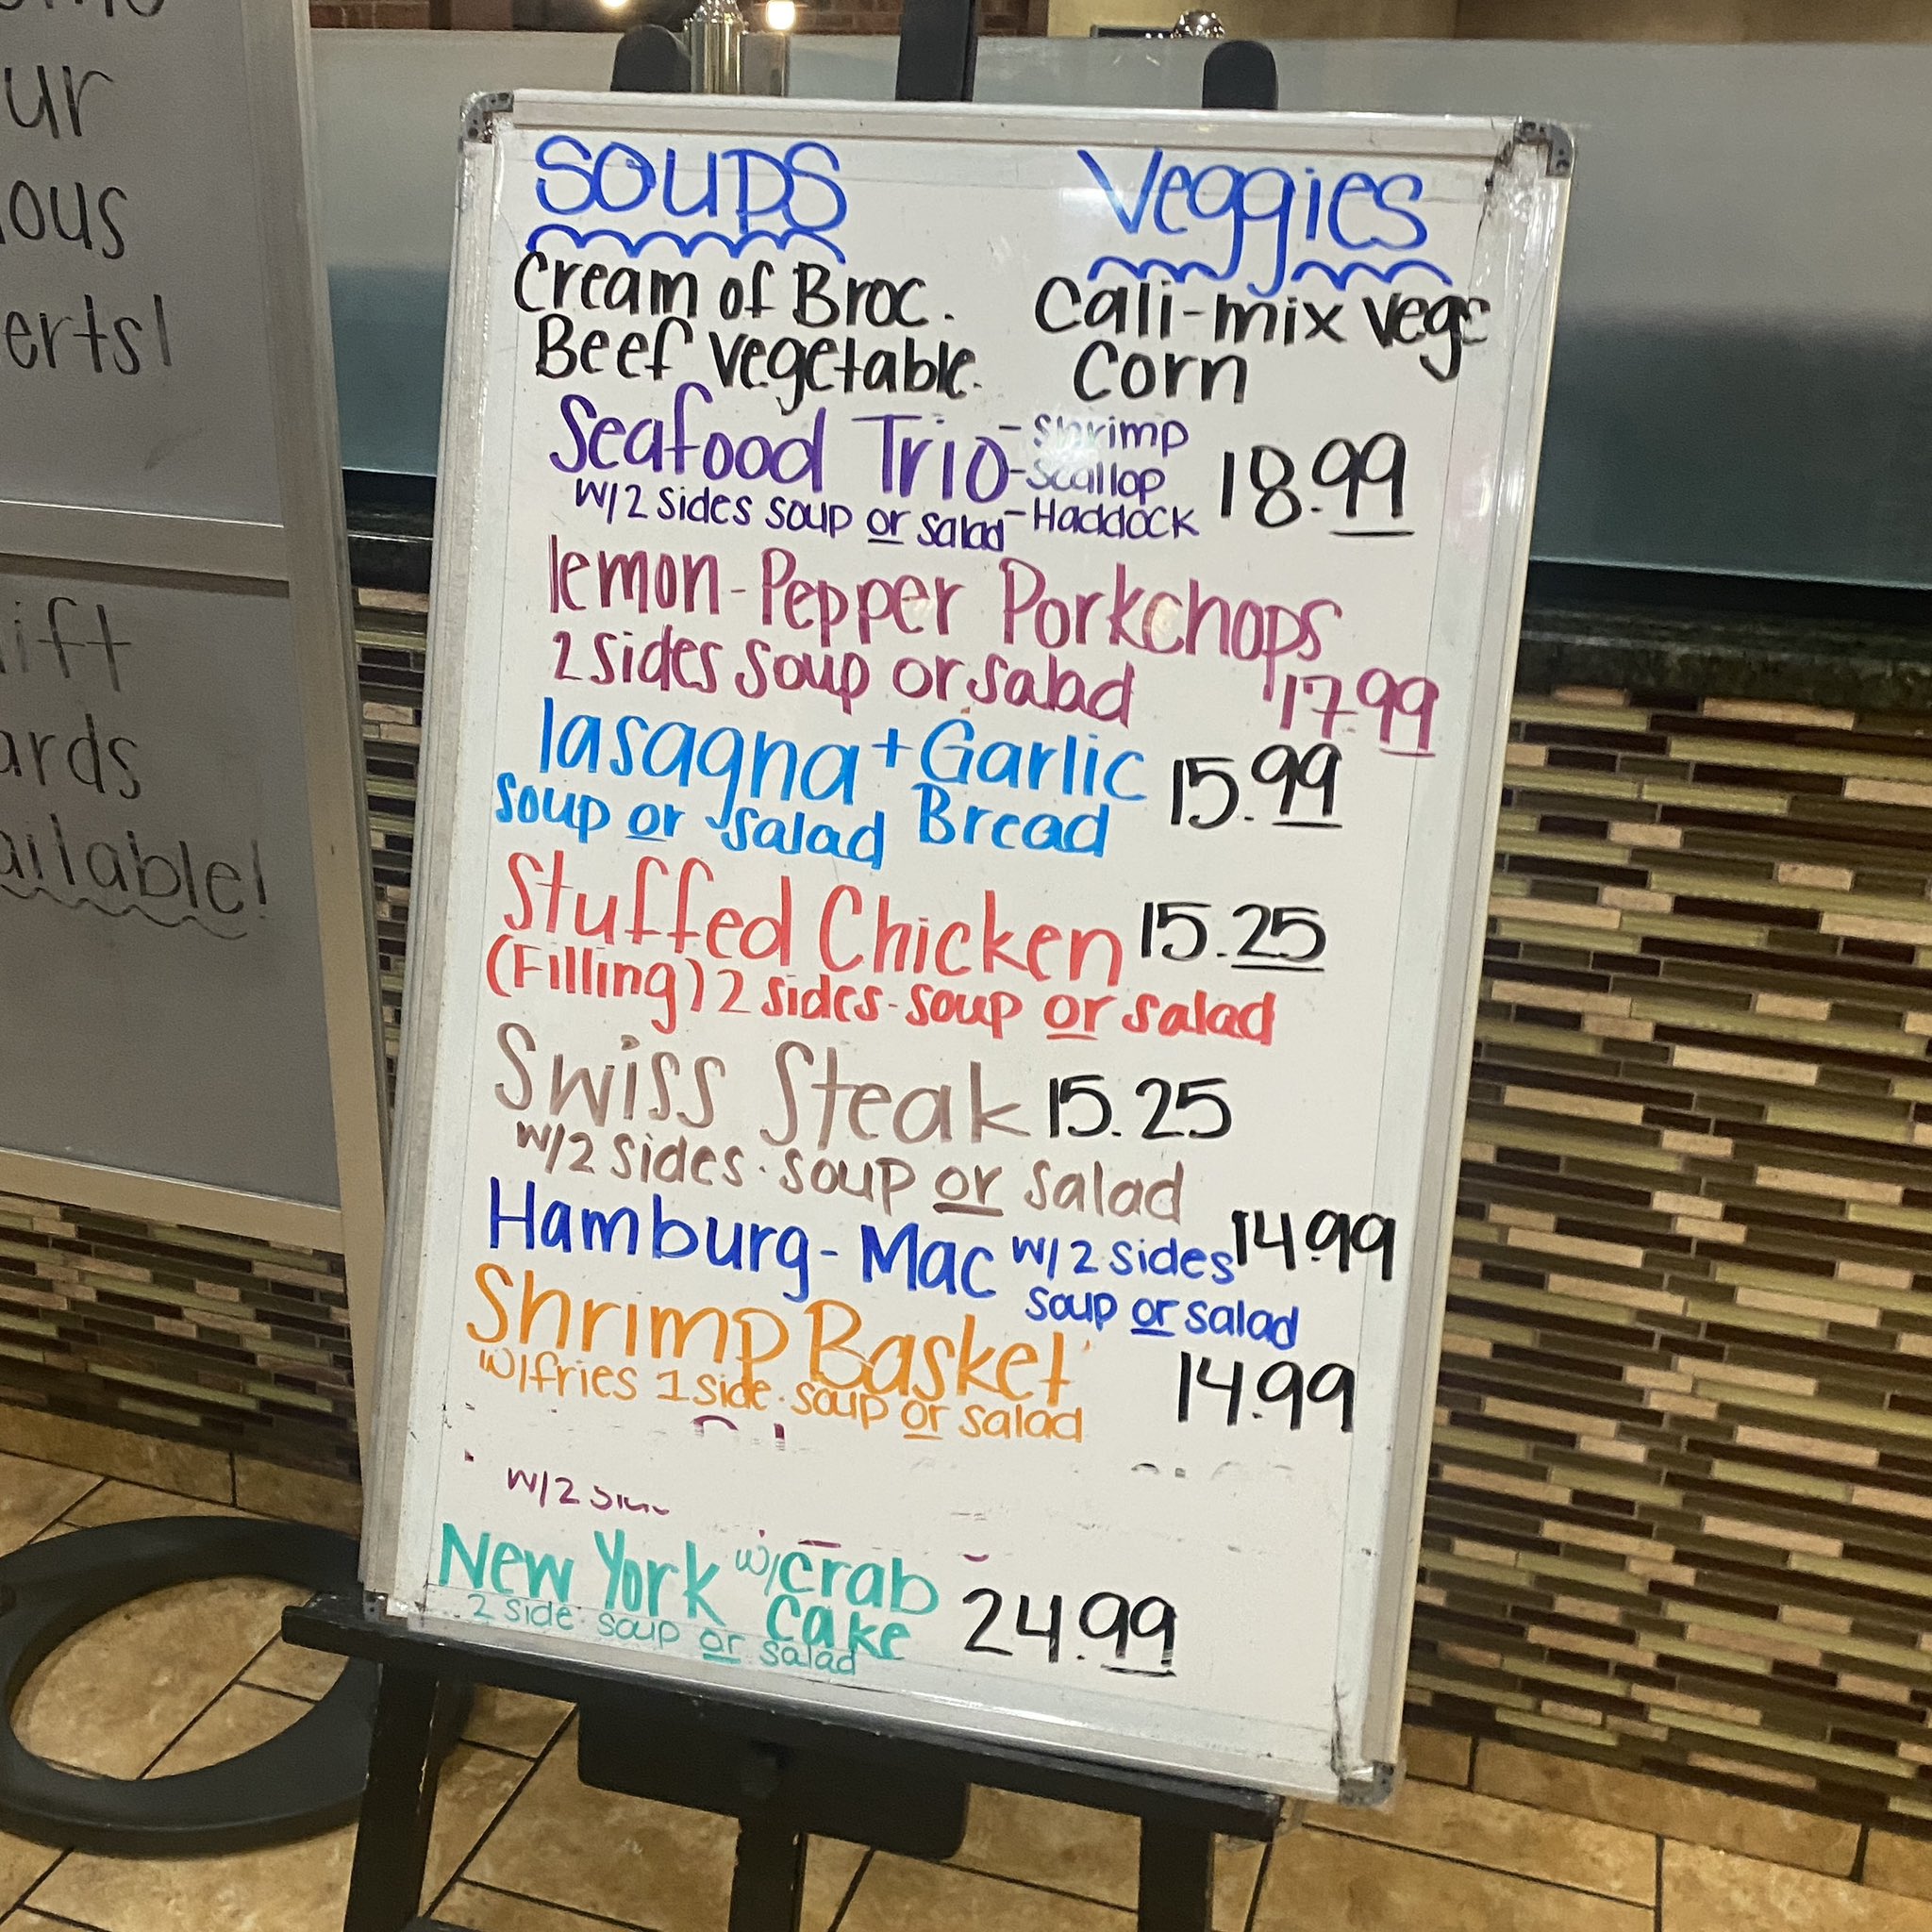 ur
ous
erts!
ift
ards
ailable!
Soups Veggies
Cream of Broc. Cali-mix vege
Beef vegetable. Corn
Seafood Trio -Shrimp 18.99
-Scallop
w/2 sides soup or salad -Haddock
lemon-Pepper Porkchops
2 sides soup or salad 17.99
lasagna + Garlic 15.99
soup or salad Bread
Stuffed Chicken 15.25
(Filling) 2 sides-soup or salad
Swiss Steak 15.25
w/2 sides. soup or salad
Hamburg-Mac w/2 sides 14.99
soup or salad
Shrimp Basket 14.99
w/fries 1 side. soup or salad
w/2
New York w/crab 24.99
cake
2 side. soup or salad